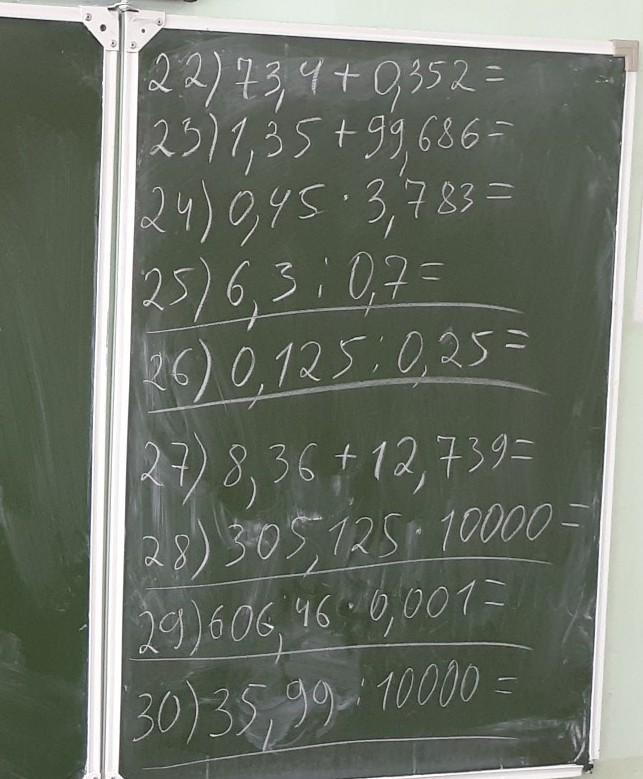 22) 73,4 + 0,352 =
23) 1,35 + 99,686 =
24) 0,45 · 3,783 =
25) 6,3 : 0,7 =
26) 0,125 : 0,25 =
27) 8,36 + 12,739 =
28) 305,125 · 10000 =
29) 606,46 · 0,001 =
30) 35,99 : 10000 =